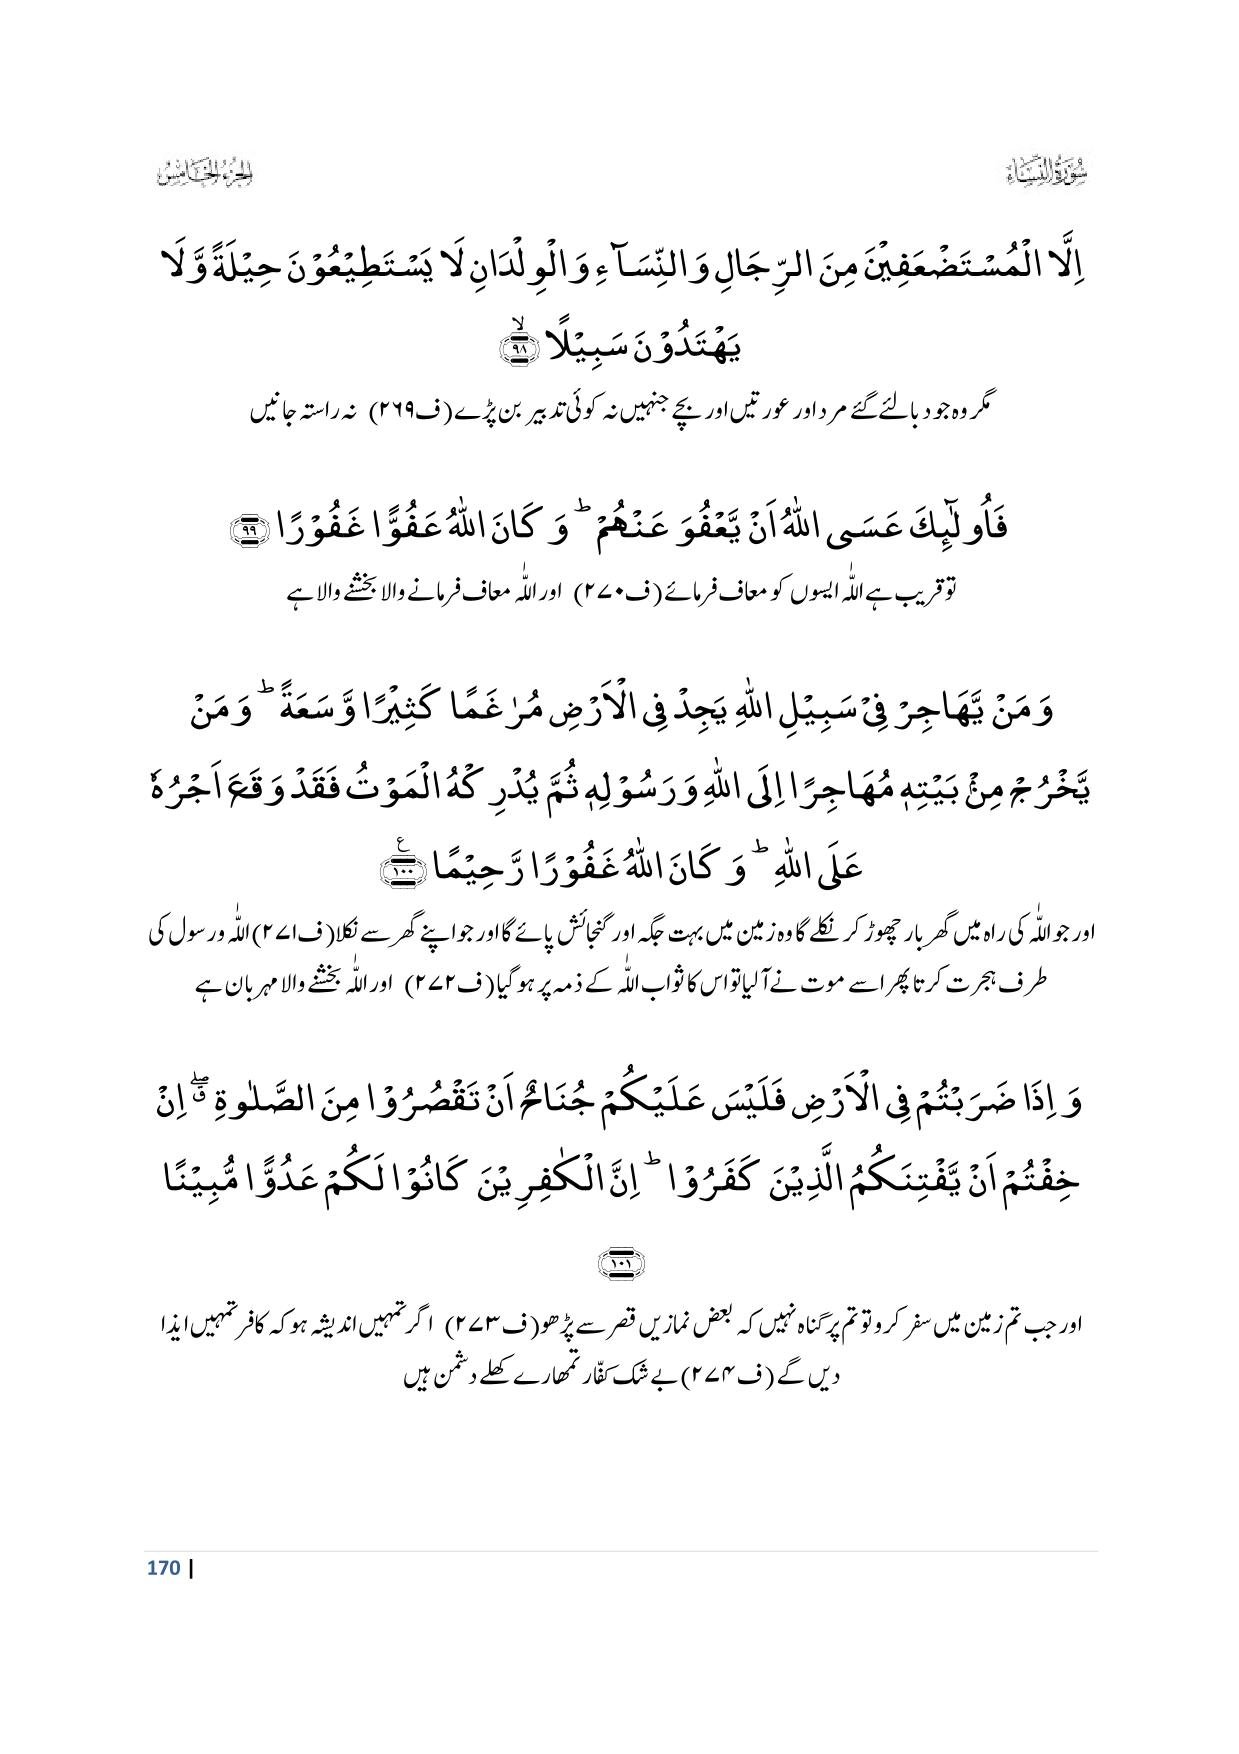 سُوْرَةُ النِّسَآء
الجزء الخامس
اِلَّا الْمُسْتَضْعَفِيْنَ مِنَ الرِّجَالِ وَ النِّسَآءِ وَ الْوِلْدَانِ لَا يَسْتَطِيْعُوْنَ حِيْلَةً وَّ لَا
يَهْتَدُوْنَ سَبِيْلًا ۙ ﴿۹۸﴾
مگر وہ جو دبالئے گئے مرد اور عورتیں اور بچے جنہیں نہ کوئی تدبیر بن پڑے (ف۲٦۹) نہ راستہ جانیں
فَاُولٰٓئِكَ عَسَى اللّٰهُ اَنْ يَّعْفُوَ عَنْهُمْ ؕ وَ كَانَ اللّٰهُ عَفُوًّا غَفُوْرًا ﴿۹۹﴾
تو قریب ہے اللّٰہ ایسوں کو معاف فرمائے (ف۲۷۰) اور اللّٰہ معاف فرمانے والا بخشنے والا ہے
وَ مَنْ يُّهَاجِرْ فِيْ سَبِيْلِ اللّٰهِ يَجِدْ فِي الْاَرْضِ مُرٰغَمًا كَثِيْرًا وَّ سَعَةً ؕ وَ مَنْ
يَّخْرُجْ مِنْۢ بَيْتِهٖ مُهَاجِرًا اِلَى اللّٰهِ وَ رَسُوْلِهٖ ثُمَّ يُدْرِكْهُ الْمَوْتُ فَقَدْ وَقَعَ اَجْرُهٗ
عَلَى اللّٰهِ ؕ وَ كَانَ اللّٰهُ غَفُوْرًا رَّحِيْمًا ﴿۱۰۰﴾ ع
اور جو اللّٰہ کی راہ میں گھر بار چھوڑ کر نکلے گا وہ زمین میں بہت جگہ اور گنجائش پائے گا اور جو اپنے گھر سے نکلا (ف۲۷۱) اللّٰہ و رسول کی
طرف ہجرت کرتا پھر اسے موت نے آلیا تو اس کا ثواب اللّٰہ کے ذمہ پر ہو گیا (ف۲۷۲) اور اللّٰہ بخشنے والا مہربان ہے
وَ اِذَا ضَرَبْتُمْ فِي الْاَرْضِ فَلَيْسَ عَلَيْكُمْ جُنَاحٌ اَنْ تَقْصُرُوْا مِنَ الصَّلٰوةِ ۖۗ اِنْ
خِفْتُمْ اَنْ يَّفْتِنَكُمُ الَّذِيْنَ كَفَرُوْا ؕ اِنَّ الْكٰفِرِيْنَ كَانُوْا لَكُمْ عَدُوًّا مُّبِيْنًا
﴿۱۰۱﴾
اور جب تم زمین میں سفر کرو تو تم پر گناہ نہیں کہ بعض نمازیں قصر سے پڑھو (ف۲۷۳) اگر تمہیں اندیشہ ہو کہ کافر تمہیں ایذا
دیں گے (ف۲۷۴) بے شک کفّار تمھارے کھلے دشمن ہیں
170 |